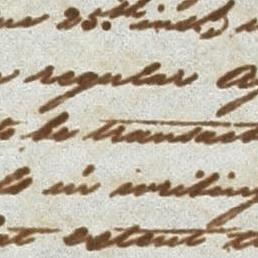 25th inst,
regular
to be transact
in writing
extent